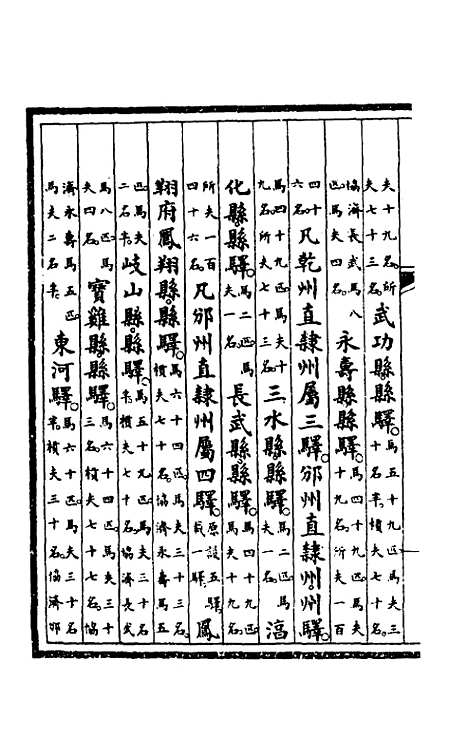 夫十九名。所夫七十三名。武功縣縣驛。馬五十九匹馬夫三十名半。槓夫七十名。
協濟長武馬八匹馬夫四名。永壽縣縣驛。馬四十九匹馬夫十九名。所夫一百
四十六名。凡乾州直隸州屬三驛。邠州直隸州州驛。
馬四十九匹馬夫十九名。所夫七十三名。三水縣縣驛。馬二匹馬夫一名。淳
化縣縣驛。馬二匹馬夫一名。長武縣縣驛。馬四十九匹馬夫十九名。
所夫一百四十六名。凡邠州直隸州屬四驛。原設五驛。裁一驛。鳳
翔府鳳翔縣縣驛。馬六十四匹馬夫三十三名。槓夫七十名。協濟永壽馬五
匹馬夫二名半。岐山縣縣驛。馬五十九匹。馬夫三十名半。槓夫七十名。協濟長武
馬八匹馬夫四名。寶雞縣縣驛。馬六十匹。馬夫三十三名。槓夫七十七名。協
濟永壽馬五匹馬夫二名半。東河驛。馬六十匹。馬夫三十名半。槓夫三十名。協濟邠